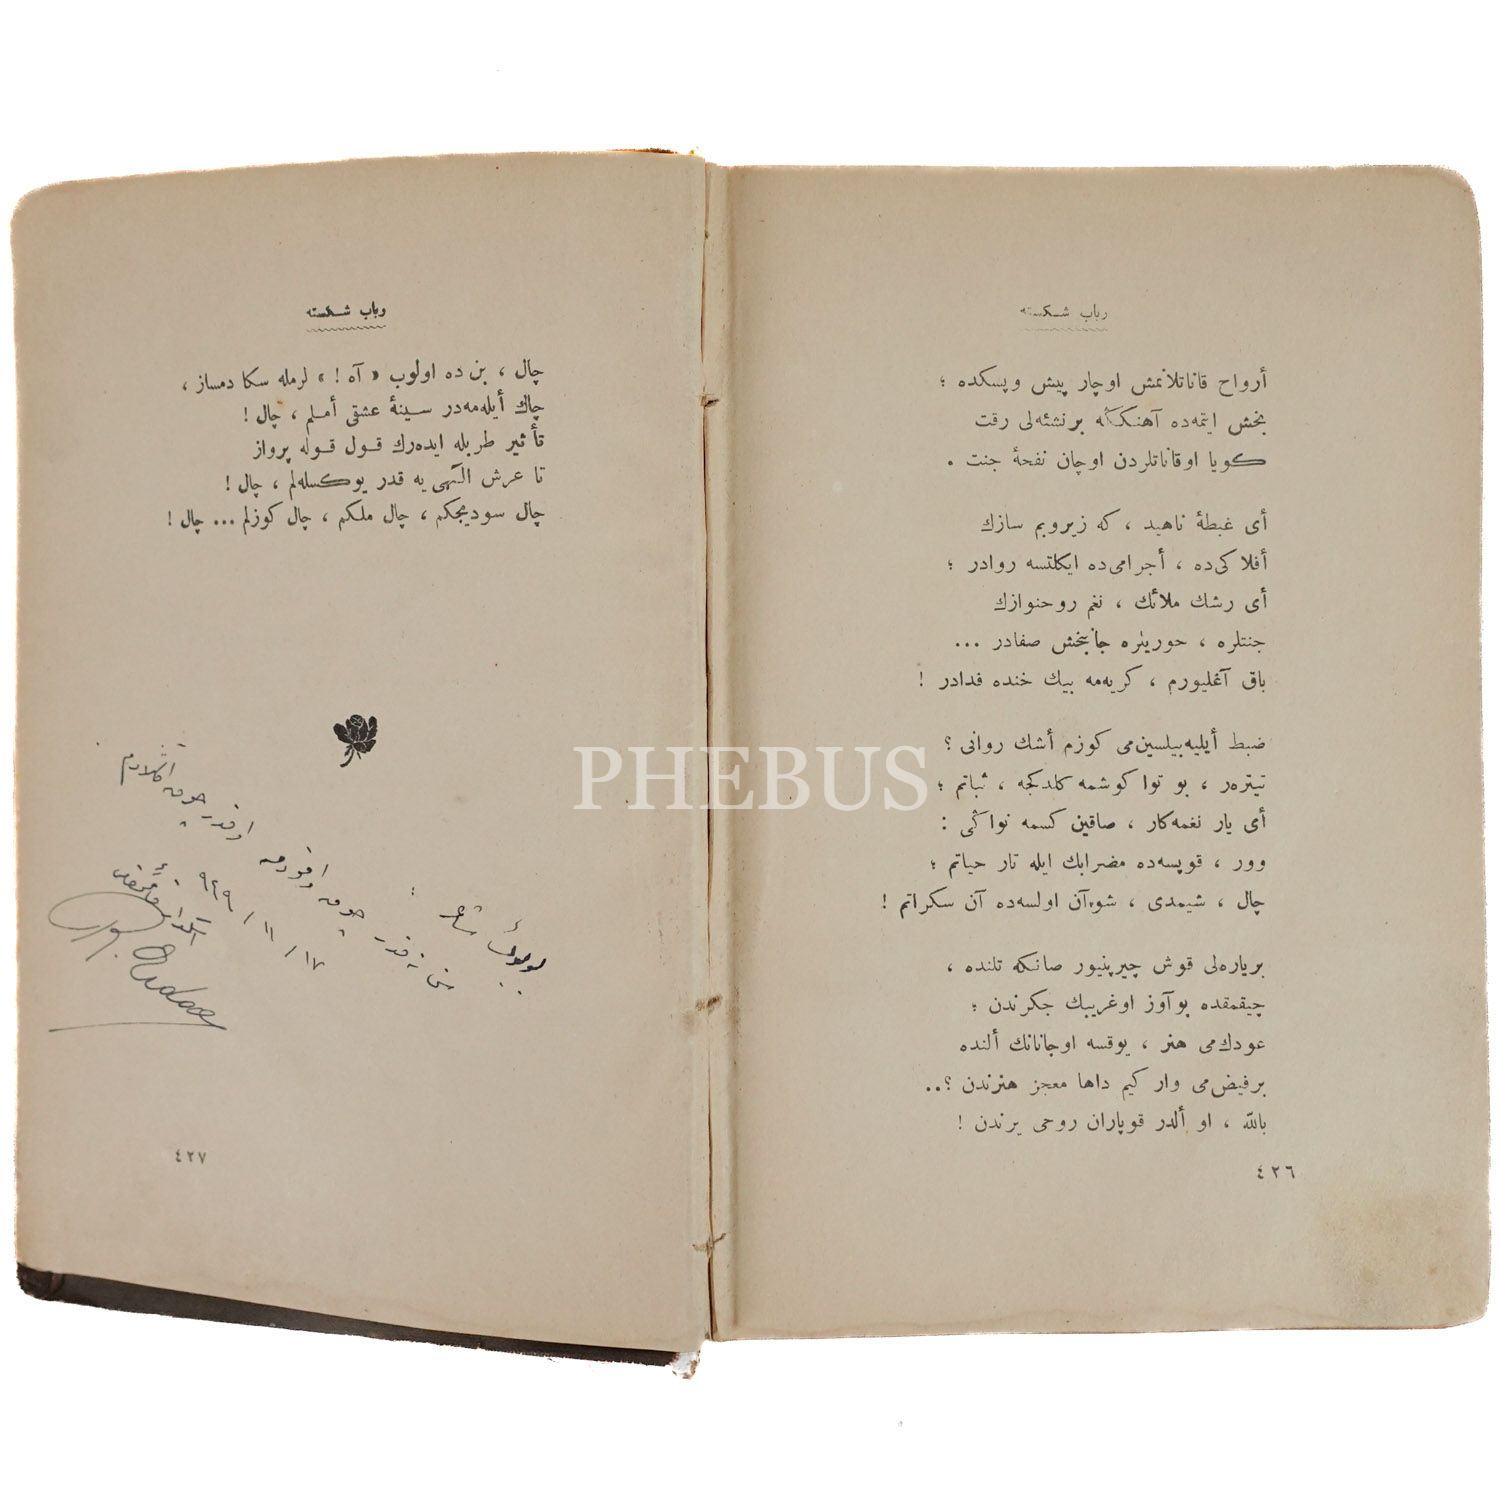 رباب شکسته
أرواح قاناتلانمش اوچار پیش و پسکده ؛
بخش ایتمه‌ده آهنککه بر نشئه‌لی رقت
کویا او قاناتلردن اوچان نفحهٔ جنت .
أی غبطهٔ ناهید ، که زیر و بم سازك
أفلاکی‌ده ، أجرامی‌ده ایکلتسه روادر ؛
أی رشك ملائك ، نغم روحنوازك
جنتلره ، حوریلره جانبخش صفادر ...
باق آغلیورم ، کریه‌مه بیك خنده فدادر !
ضبط أیلیه بیلسین‌می کوزم أشك روانی ؟
تیتره‌ر ، بو نوا کوشمه کلدکجه ، ثباتم ؛
أی یار نغمه‌کار ، صاقین کسمه نواکی :
وور ، قوپسه‌ده مضرابك ایله تار حیاتم ؛
چال ، شیمدی ، شو آن اولسه‌ده آن سکراتم !
بر یاره‌لی قوش چیرپنیور صانکه تلنده ،
چیقمقده بو آواز او غریبك جکرندن ؛
عودك‌می هنر ، یوقسه او جانانك ألنده
بر فیض‌می وار کیم داها معجز هنرندن ؟..
بالله ، او ألدر قوپاران روحی یرندن !
٤٢٦
رباب شکسته
چال ، بن ده اولوب « آه ! » لرمله سکا دمساز ،
چاك أیله‌مه‌در سینهٔ عشقی أملم ، چال !
تأثیر طربله ایده‌رك قول قوله پرواز
تا عرش الٓهی یه قدر یوکسله‌لم ، چال !
چال سودیجکم ، چال ملکم ، چال کوزلم ... چال !
بویوك شاعر :
سنی نه قدر چوق اوقودمسه او قدر چوق آکلادم
١٧ / ١١ / ٩٢٩
٤٢٧
PHEBUS